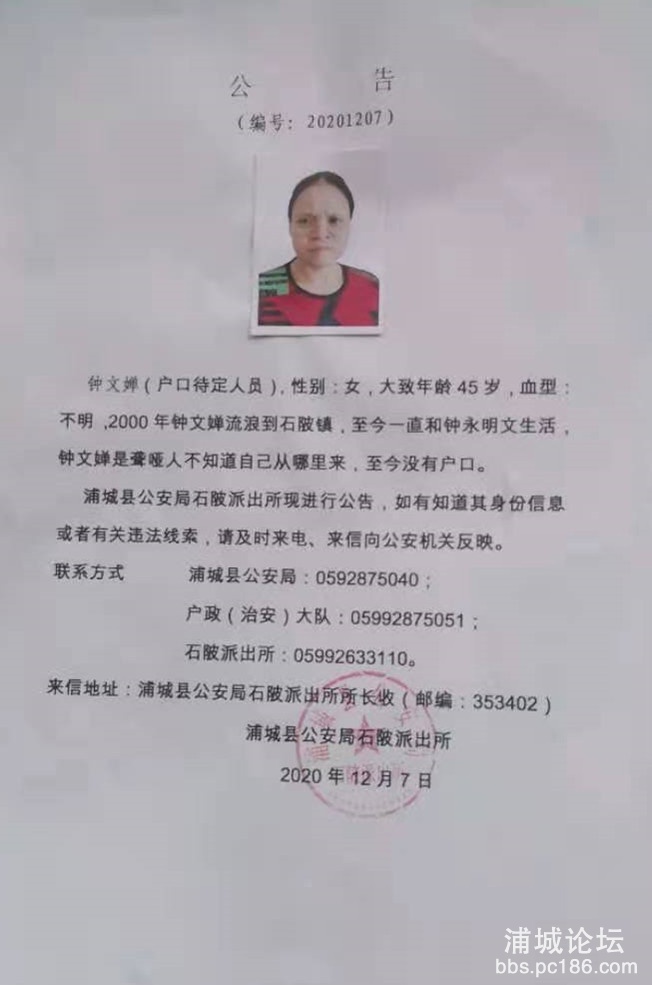 公 告
(编号: 20201207)
钟文婵(户口待定人员),性别:女,大致年龄45岁,血型:
不明,2000年钟文婵流浪到石陂镇,至今一直和钟永明文生活,
钟文婵是聋哑人不知道自己从哪里来,至今没有户口。
浦城县公安局石陂派出所现进行公告,如有知道其身份信息
或者有关违法线索,请及时来电、来信向公安机关反映。
联系方式 浦城县公安局:0592875040;
户政(治安)大队:05992875051;
石陂派出所:05992633110。
来信地址:浦城县公安局石陂派出所所长收(邮编:353402)
浦城县公安局石陂派出所
2020年12月7日
浦城论坛
bbs.pc186.com